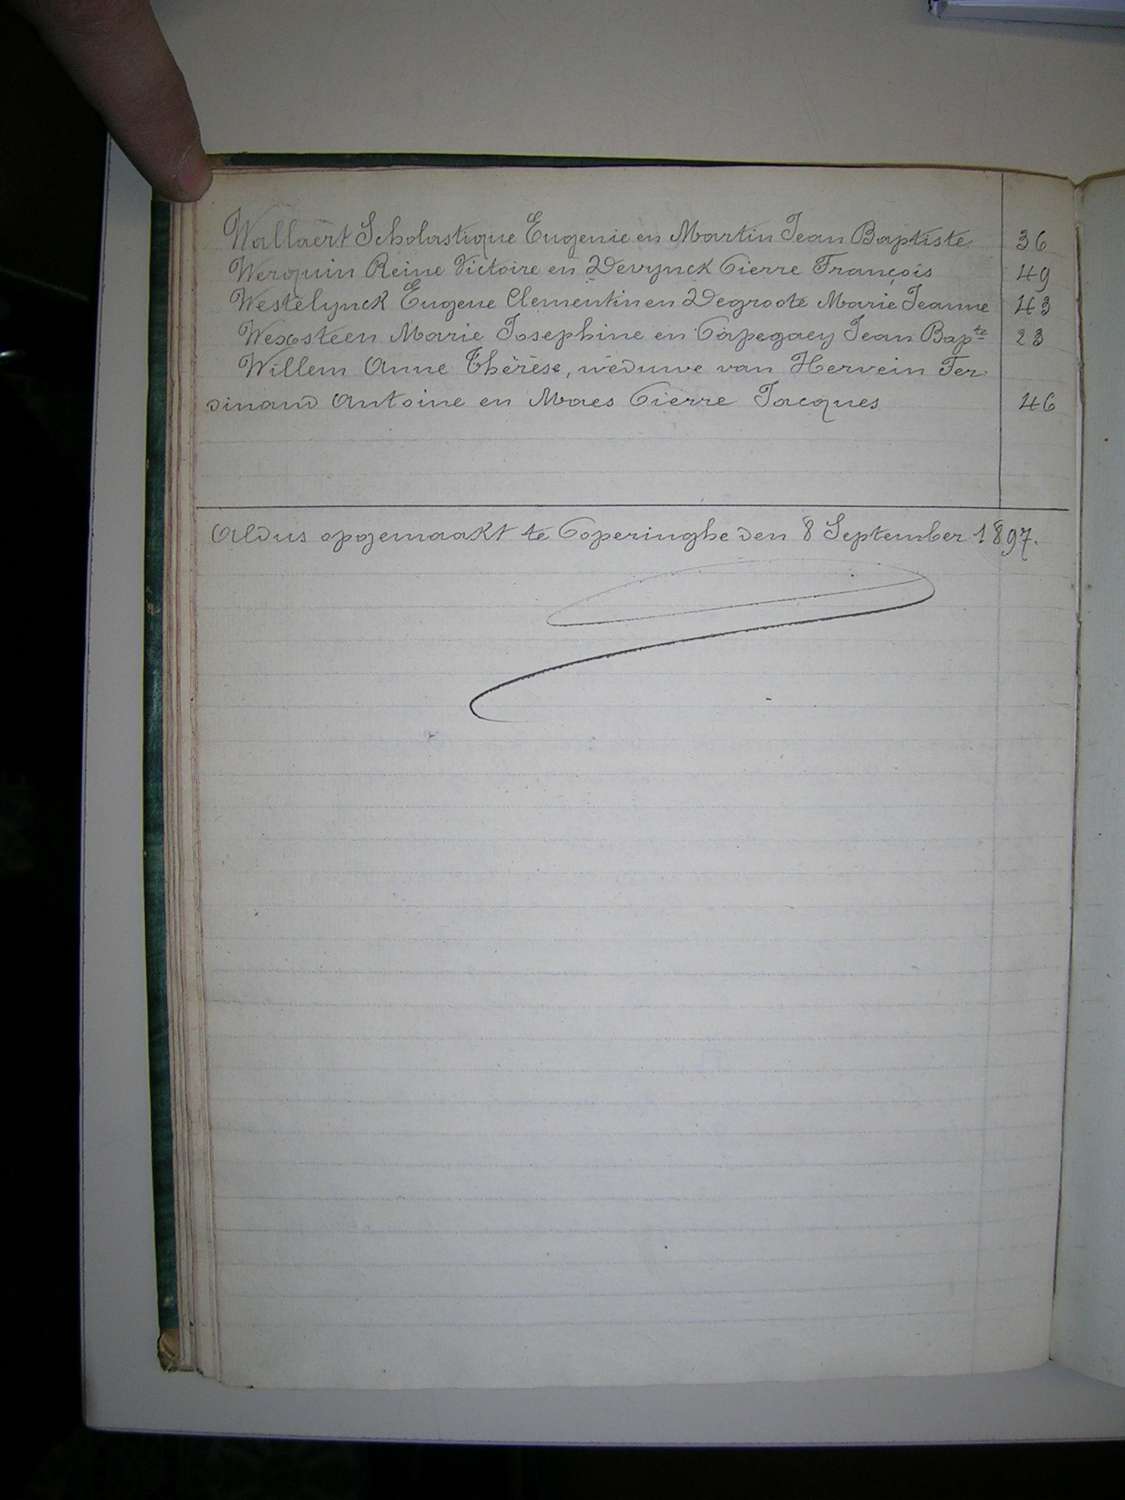 Wallaert Scholastique Eugenie en Martin Jean Baptiste 36
Werquin Reine Victoire en Devrynck Pierre François 49
Westelynck Eugene Clementin en Degroote Marie Jeanne 43
Wexsteen Marie Josephine en Papegaey Jean Bapte 23
Willem Anne Thérèse, weduwe van Hervein Fer
dinand Antoine en Maes Pierre Jacques 46
Aldus opgemaakt te Poperinghe den 8 September 1897.